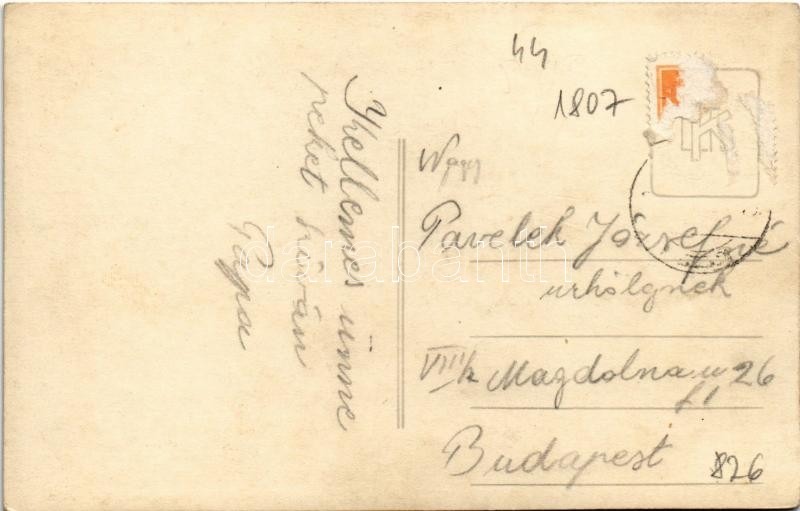 Kellemes ünne
peket kíván
Papa
44
1807
Nagy
Pavelek Józsefné
urhölgynek
VIII/k Magdolna u 26
Budapest
826
darabanth